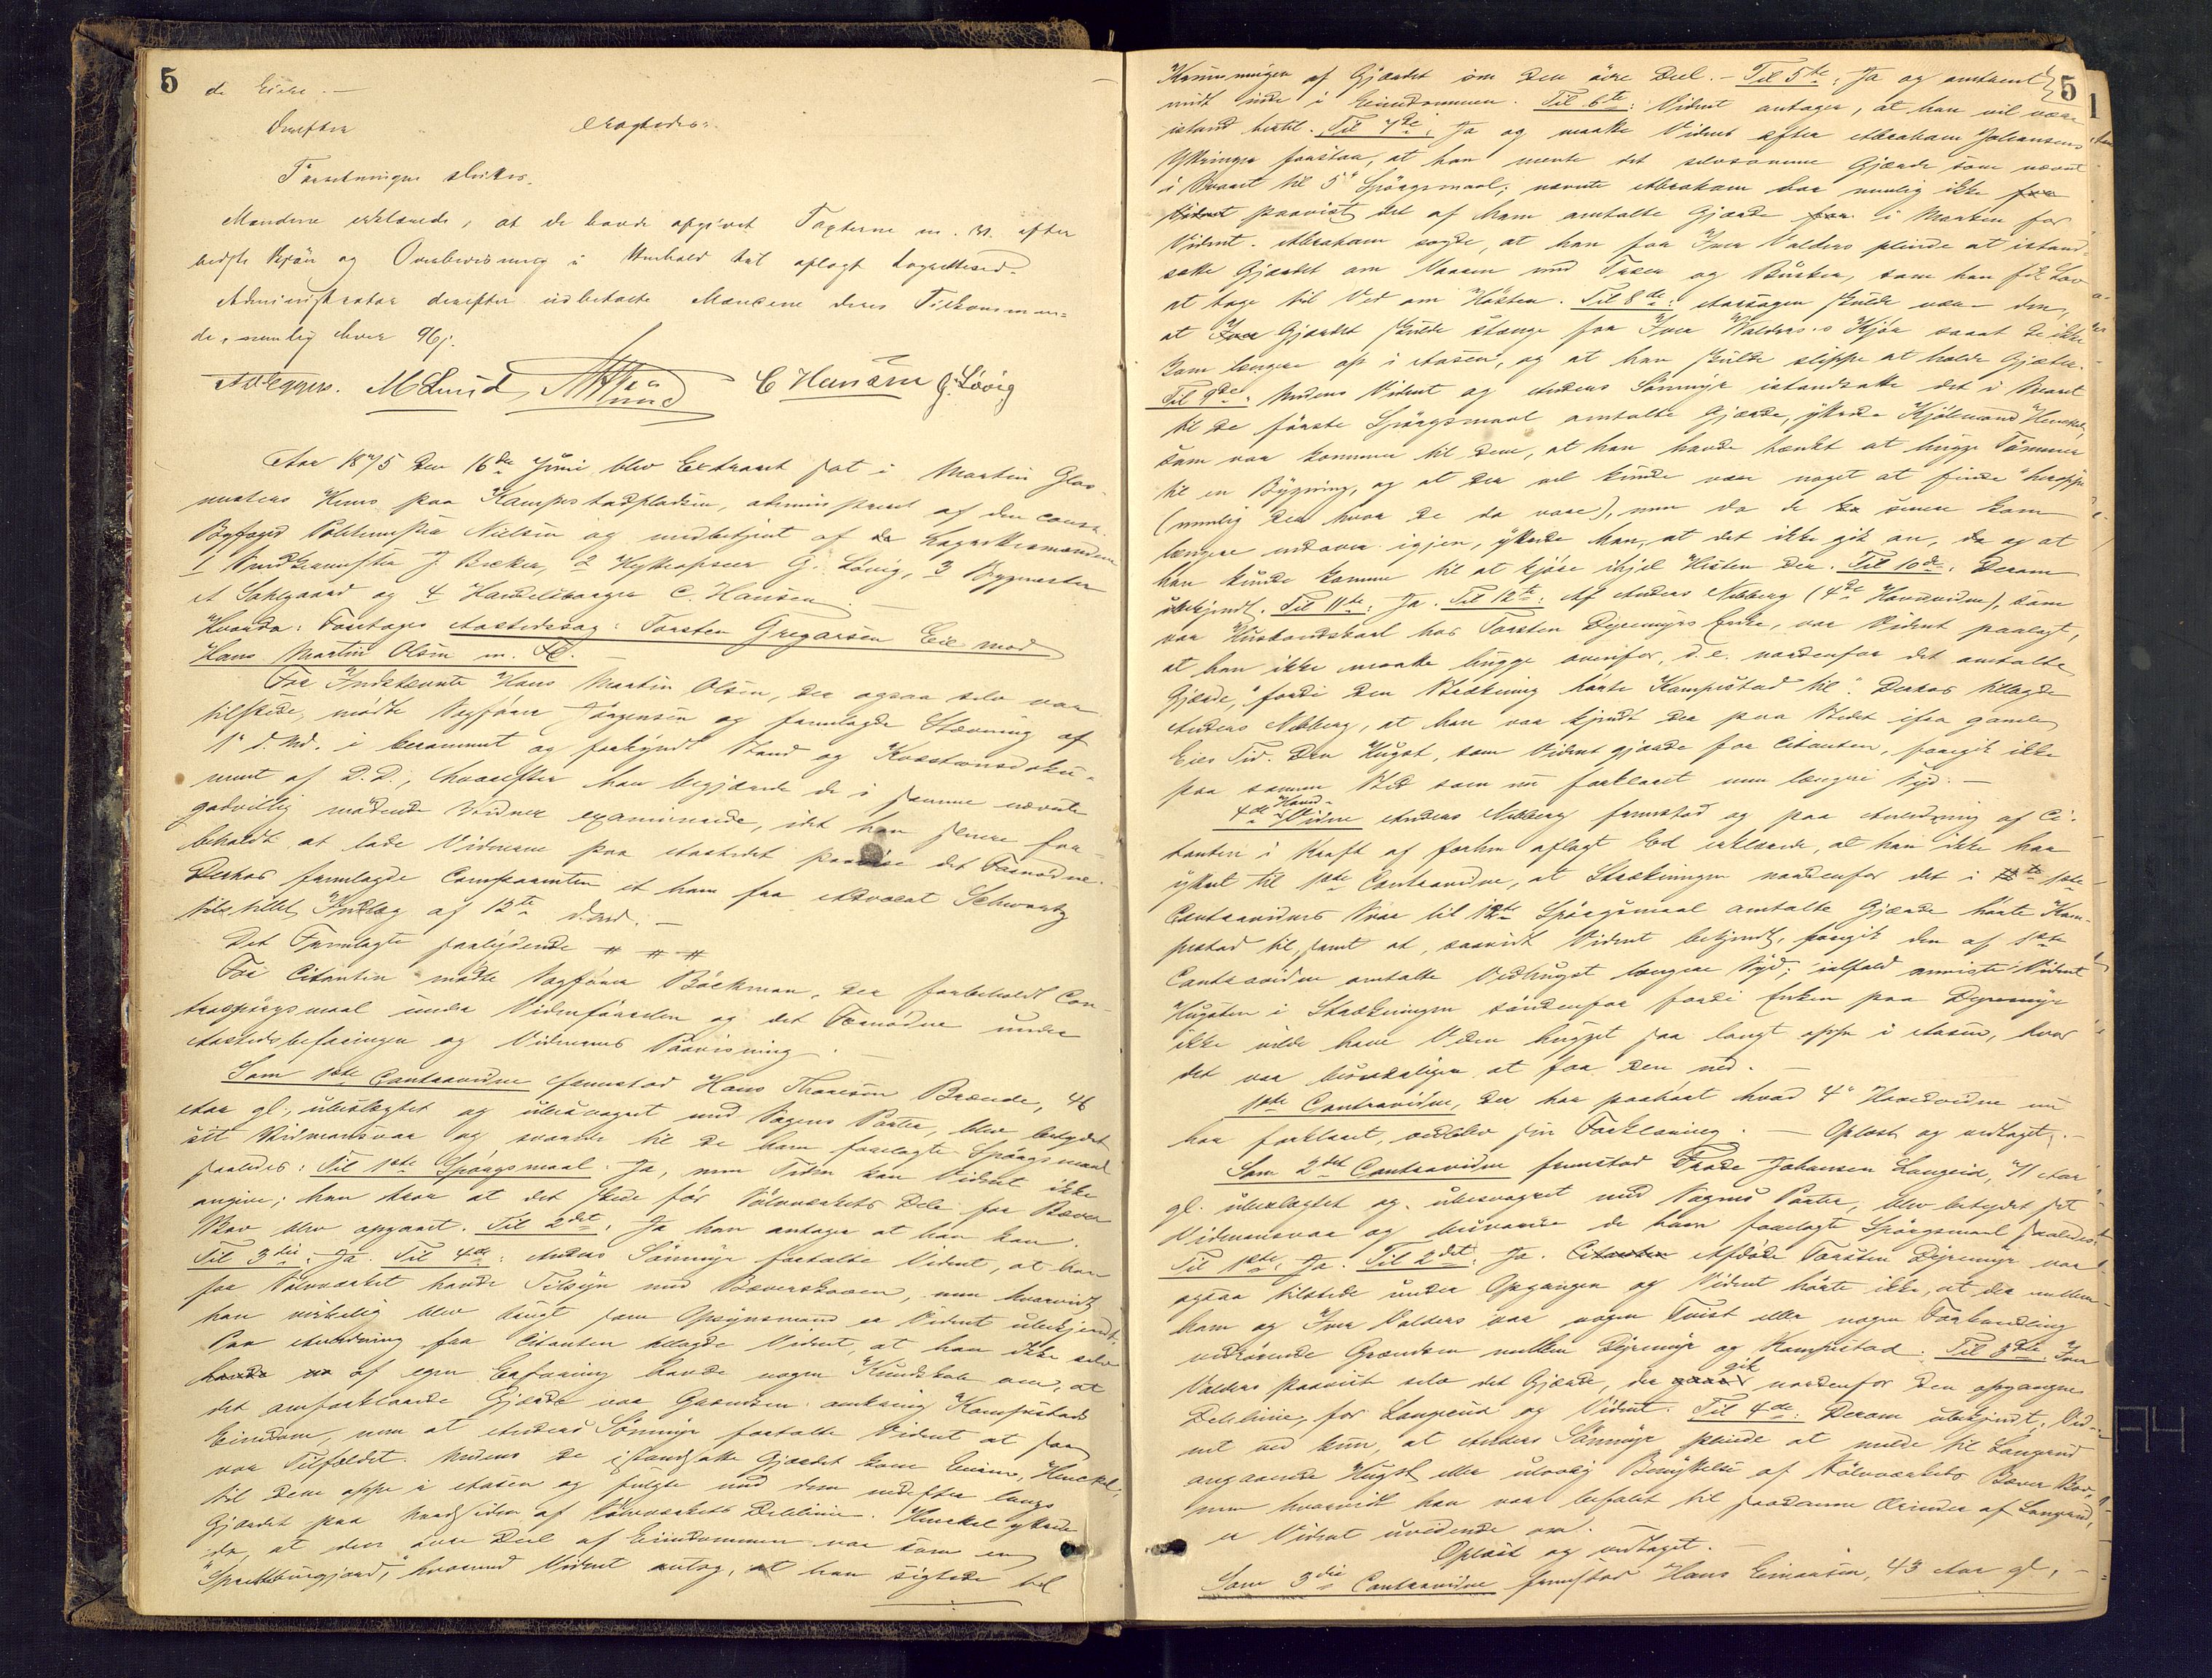 5
de Eier. —
Derefter fragtedes:
Forretningen sluttes.
Mændene erklærede, at de havde afgivet Taxterne m. v. efter
bedste Skjøn og Overbevisning i Henhold til aflagt Lagrettesed.
Administrator derefter udbetalte Mændene deres Tilkommen=
de, nemlig hver
A. Eggers. M Lund C Hansen G. Lövig
Aar 1875 den 16de Juni blev Extraret sat i Martin Glas-
mesters Huus paa Kampestadpladsen, administreret af den const.
Byfoged Politimester Nielsen og medbetjent af de Lagrettesmændene
1 Kunstkarmester J. Becker, 2 G. Lövig, 3 Bygmester
A Sahlgaard og 4 Handelsborger C. Hansen.
Hvorda: Foretoges Aastedssag: Torsten Gregersen Eie mod
Hans Martin Olsen m. Fl. —
For Indstevnte Hans Martin Olsen, der ogsaa selv var
tilstede, mødte Sagfører Jörgensen og fremlagde Stævning af
11te d. Md. i berammet og forkyndt Stand og Kvæstionsdoku-
ment af D.D., hvorefter han begjærede de i samme nævnte
godvillig mødende Vidner examinerede, idet han senere for-
beholdt at lade Vidnerne paa Aastedet paavise det Fornødne.
Derhos fremlagde Comparenten et ham fra Advocat Schwartz
tilstillet Indlæg af 12te d. Md. —
Det Fremlagte saalydende # # #
For Citanten mødte Sagfører Böckman, der forbeholdt Con-
traspörgsmaal under Vidneførselen og det Fornødne under
Aastedsbefaringen og Vidnernes Paavisning. —
Som 1ste Contravidne fremstod Hans Thoresen Brænde, 46
Aar gl., ubeslægtet og ubesvogret med Sagens Parter, blev betydet
sit Vidneansvar og svarede til de ham forelagte Spørgsmaal
saaledes: Til 1ste Spørgsmaal. Ja, men Tiden kan Vidnet ikke
angive; han tror at det skede før Sölvværkets Dele fra Bæver
Skov blev opgaaet. Til 2det. Ja han antager at han kan.
Til 3die: Ja. Til 4de: Anders Sönmyr fortalte Vidnet, at han
fra Sölvværket havde Tilsyn med Bæverskoven, men hvorvidt
han virkelig blev brugt som Opsynsmand er Vidnet ubekjendt.
Paa Anledning fra Citanten tillagde Vidnet, at han ikke selv
havde af egen Erfaring havde nogen Kundskab om, at
det omforklarede Gjærde var Grændsen omkring Kampestads
Eiendom, men at Anders Sönmyr fortalte Vidnet at saa
var Tilfældet. Medens de istandsatte Gjærdet kom Henckel
til dem oppe i Aasen og fulgte med dem nedefter langs
Gjærdet paa af Sölvværkets Delelinie. Henckel yttrede
da, at den øvre Deel af Eiendommen var som en
"Sprettburgjord", hvormed Vidnet antog, at han sigtede til
5
Krumningen af Gjærdet om den øvre Deel. — Til 5te: Ja og omtrent
midt inde i Eiendommen. Til 6te: Vidnet antager, at han vil være
istand hertil. Til 7de: Ja og maatte Vidnet efter Abraham Johansens
Yttringer forstaa, at han mente det selvsamme Gjærde som nævnt
i Svaret til 5te Spörgsmaal; nævnte Abraham har nemlig ikke
Vidnet paavist det af ham omtalte Gjærde i Marken for
Vidnet. Abraham sagde, at han for Iver Valders pleiede at istand-
sætte Gjærdet om Vaaren med Trær og Busker, som han fik Lov
at tage til Ved om Høsten. Til 8de: Aarsagen skulde være den,
at Gjærdet skulde stænge for Iver Valders's Kjör saaat de ikke
kom længere op i Aasen, og at han skulde slippe at holde Gjæter.
Til 9de: Medens Vidnet og Anders Sönmyr istandsatte det i Svaret
til de første Spörgsmaal omtalte Gjærde, yttrede Henckel,
som var kommen til dem, at han havde tænkt at hugge Tömmer
til en Bygning, og at der vel kunde være noget at finde "heroppe
(nemlig der hvor de da vare), men da de senere kom
længere nedover igjen, yttrede han, at det ikke gik an, da og at
han kunde komme til at kjøre ihjel Hesten der. Til 10de. Derom
ubekjendt. Til 11te: Ja. Til 12te: Af Anders Nibberg (4de Hovedvidne), som
var Husbondskarl hos Torsten Dyremyrs Enke, var Vidnet paalagt,
at han ikke maatte hugge ovenfor, d. e. nordenfor det omtalte
Gjærde, "fordi den Strækning hørte Kampestad til". Derhos tillagde
Anders Nibberg, at han var kjendt der paa Stedet ifra gamle
Eies Tid. Den Hugst, som Vidnet gjorde for Citanten, foregik ikke
paa samme Sted som nu forklaret men længere Syd. —
4de Hoved-Vidne Anders Nibberg fremstod og paa Anledning af Ci-
tanten i Kraft af forhen aflagt Eed erklærede, at han ikke har
yttret til 1ste Contravidne, at Strækningen nordenfor det i 1ste
Contravidnes Svar til 12te Spörgsmaal omtalte Gjærde hørte Kam-
pestad til, samt at, saavidt Vidnet bekjendt, foregik den af 1ste
Contravidne omtalte Vedhugst længere Syd; ialfald anviste Vidnet
Hugsten i Strækningen søndenfor fordi Enken paa Dyremyr
ikke vilde have Veden hugget saa langt oppe i Aasen, hvor
det var besværligere at faa den ned. —
1ste Contravidne, der har paahørt hvad 4de Hovedvidne nu
har forklaret, vedblev sin Forklaring. — Oplæst og vedtaget. —
Som 2det Contravidne fremstod Frode Johansen Langerud, 71 Aar
gl. ubeslægtet og ubesvogret med Sagens Parter, blev betydet sit
Vidneansvar og besvarede de ham forelagte Spörgsmaal saaledes:
Til 1ste: Ja. Til 2det: Ja. Citanten Afdøde Torsten Dyremyr var
ogsaa tilstede under Opgangen og Vidnet hørte ikke, at der mellem
ham og Iver Valders var nogen Tvist eller nogen Forhandling
vedrørende Grændsen mellem Dyremyr og Kampestad. Til 3die: Iver
Valders paaviste selv det Gjærde, der gik nordenfor den opgangne
Delelinie, for Langerud og Vidnet. Til 4de: Derom ubekjendt; Vid-
net ved kun, at Anders Sönmyr pleiede at melde til Langerud
angaaende Hugst eller ulovlig Benyttelse af Sölvværkets Bæver Skov,
men hvorvidt han var befalet til saadanne Ærinder af Langerud,
er Vidnet uvidende om.
Oplæst og vedtaget. —
Som 3die Contravidne fremstod Hans Einersen, 43 Aar gl., —